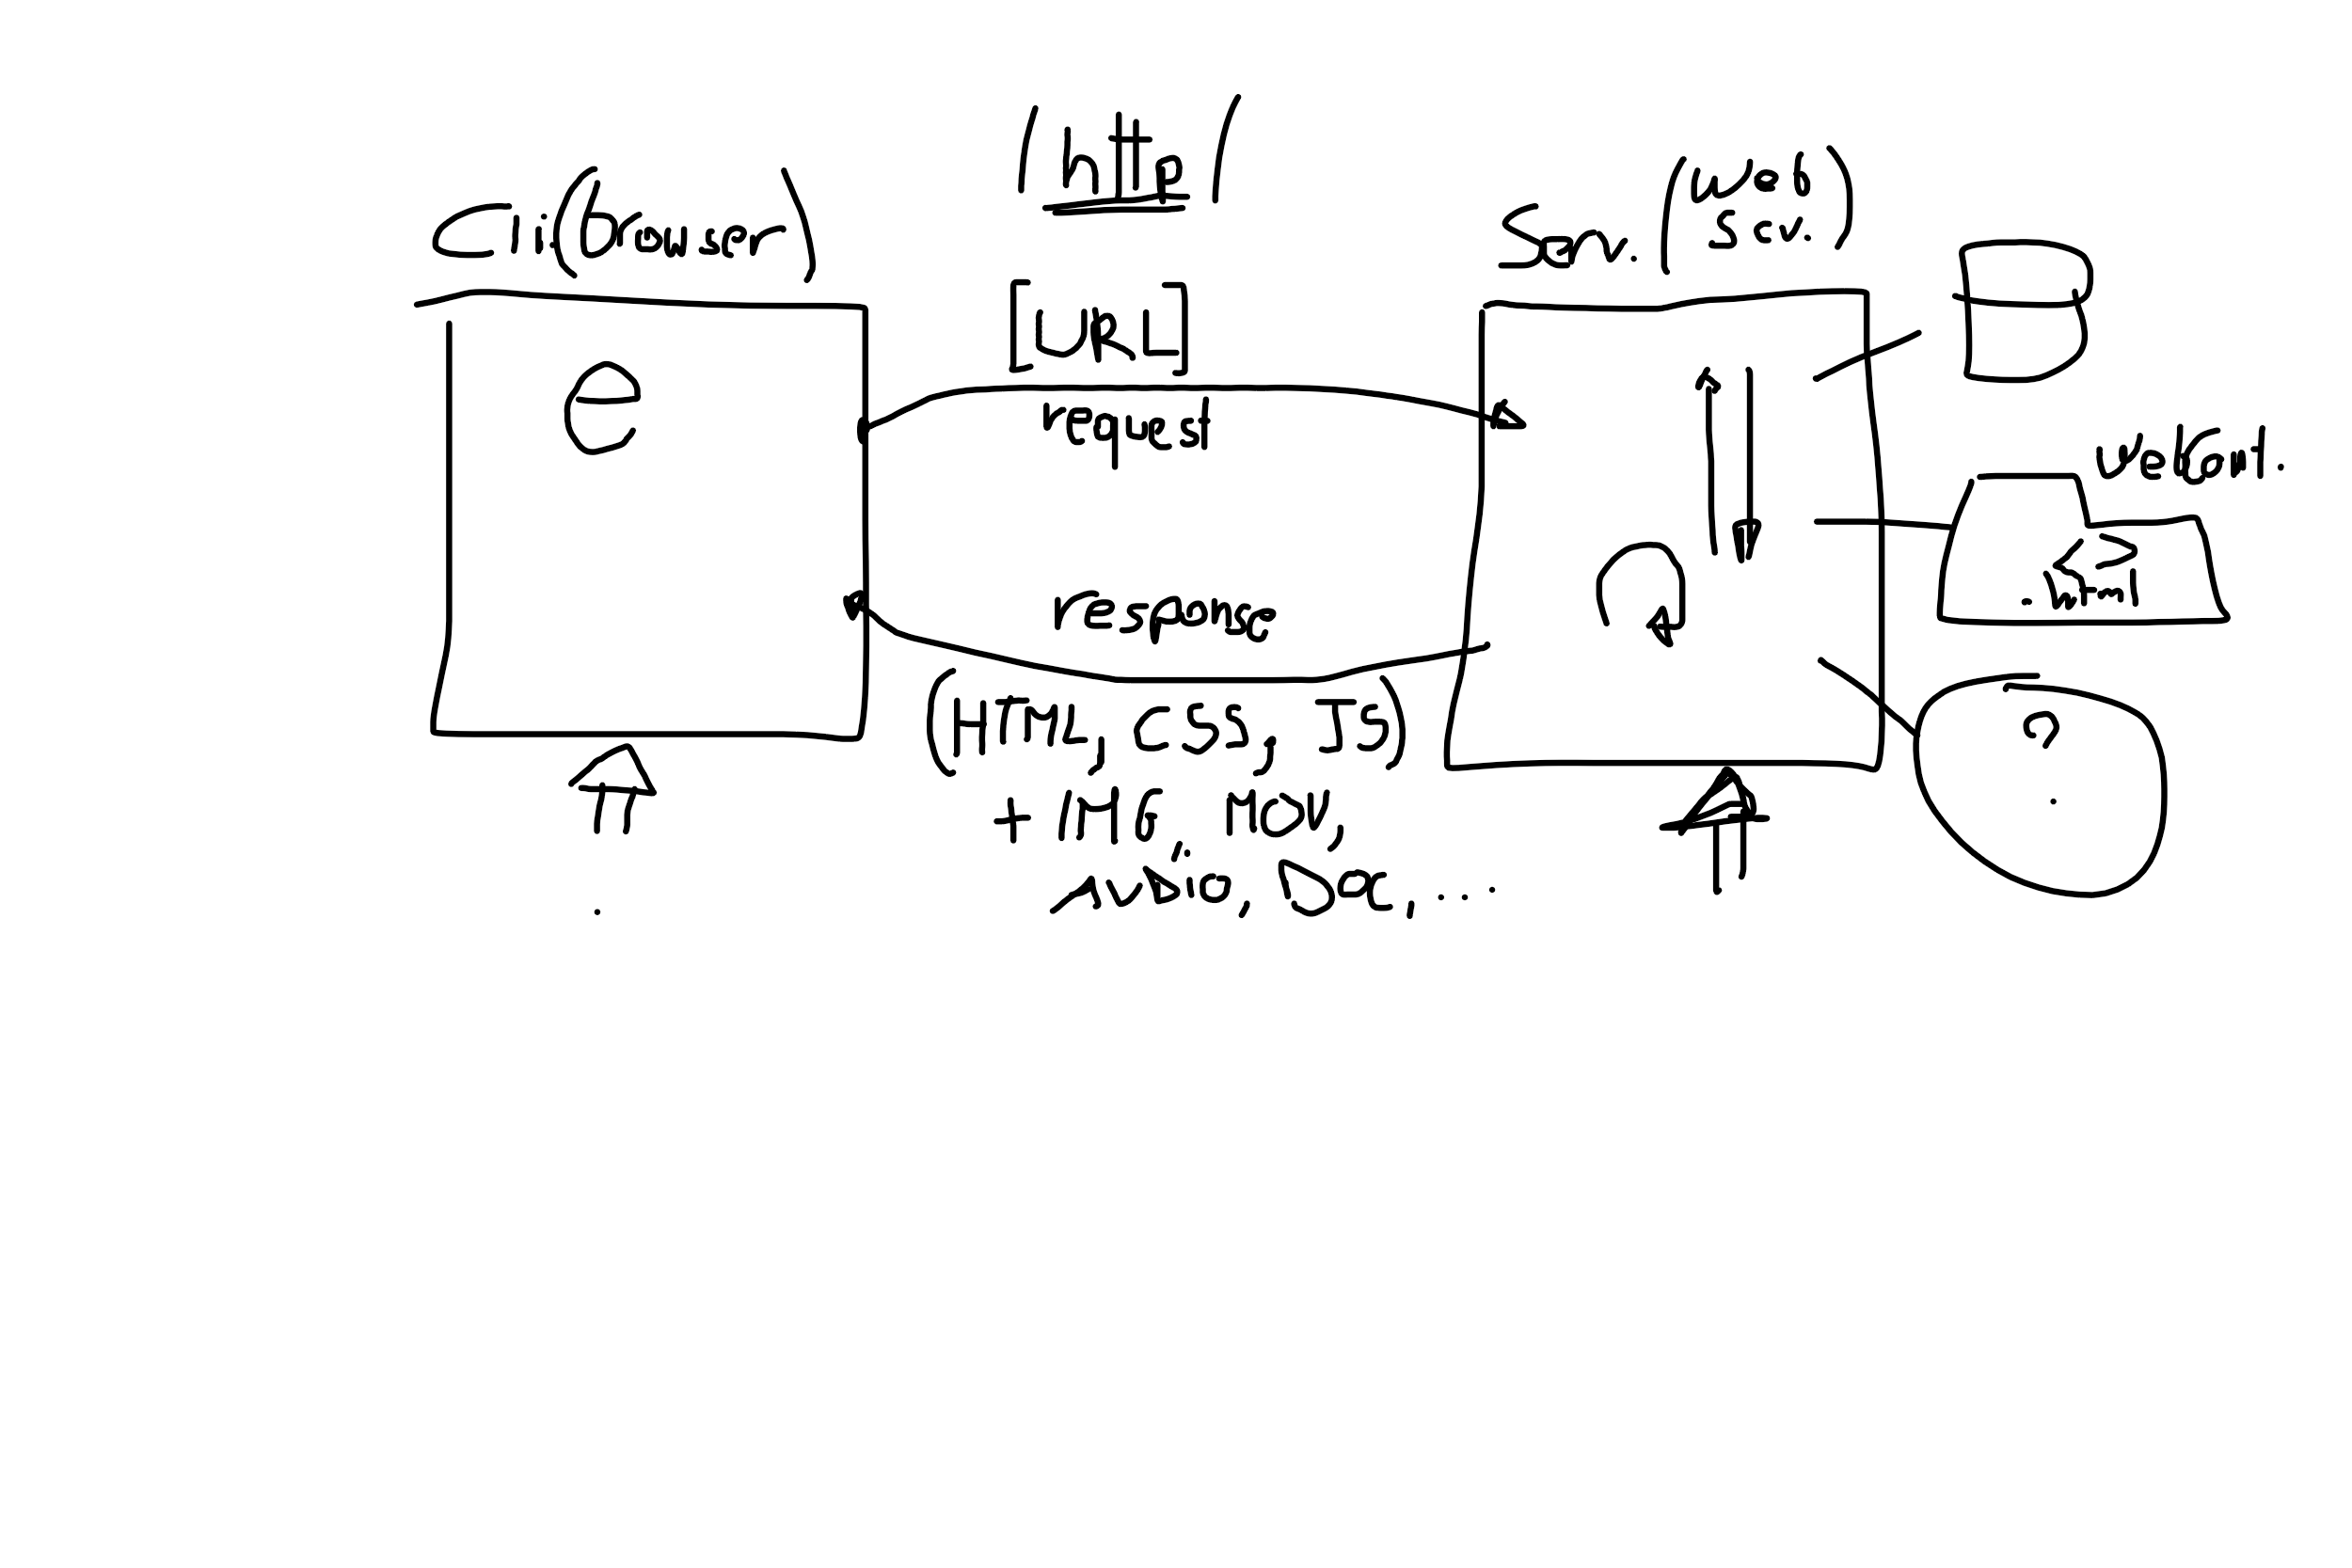 Cli(Browser)
http
Serv.(Web
Serv.)
[URL]
e
request
response
(HTML, CSS, JS)
+ IMG, MOV,
Audio, Doc, ...
webcont.
.html
?